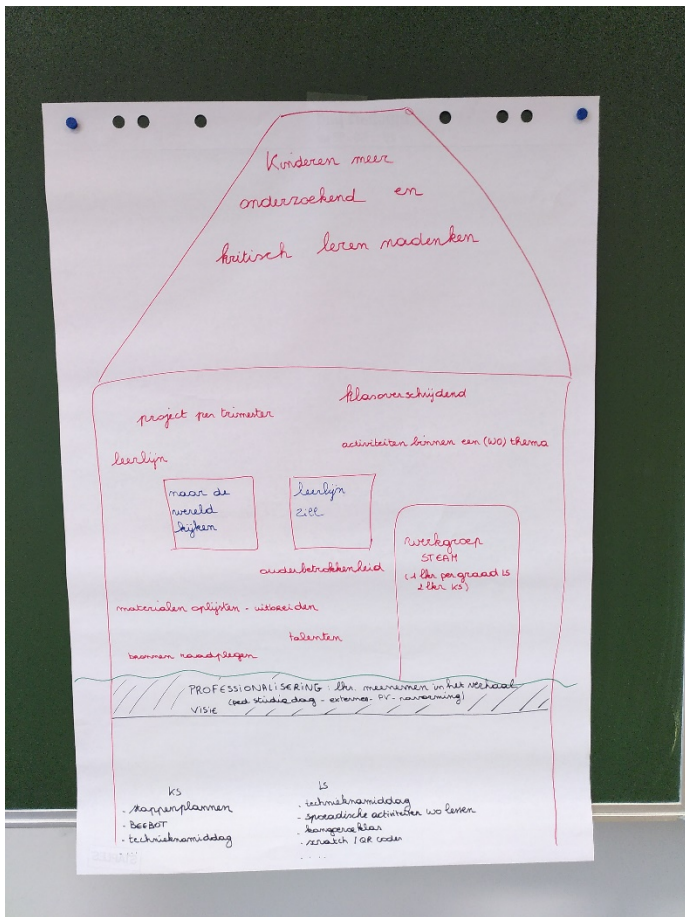 Kinderen meer
onderzoekend en
kritisch leren nadenken
klasoverschrijdend
project per trimester
activiteiten binnen een (WO) thema
leerlijn
naar de
wereld
kijken
leerlijn
Zill
werkgroep
STEAM
(1 lkr per graad LS
2 lkr KS)
ouderbetrokkenheid
materialen oplijsten - uitbreiden
talenten
bronnen raadplegen
PROFESSIONALISERING : lkr. meenemen in het verhaal
(ped. studiedag - externes - PV - navorming)
VISIE
KS
. stappenplannen
. BEEBOT
. technieknamiddag
LS
. technieknamiddag
. sporadische activiteiten WO lessen
. kangoeroeklas
. scratch / QR codes
. . . .